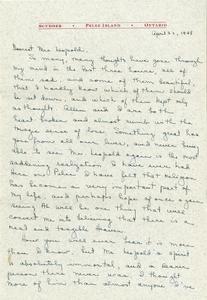 SCUDDER • PELEE ISLAND • ONTARIO
April 22, 1948
Dearest Mrs. Leopold:
So many, many thoughts have gone through
my mind in the last three hours, all of
them sad, and some of them beautiful
that I hardly know which of them should
be set down, and which of them kept only
as thoughts. Allen and I are both
heart broken and almost numb with the
tragic sense of loss. Something great has
gone from all our lives, and never being
able to see Mr. Leopold again is the most
saddening realization I have ever had.
Here on Pelee I have felt that religion
has become a very important part of
my life, and perhaps hope of once again
seeing Al will be the thing that will
convert me into believing that there is a
real and tangible Heaven.
How you will ever bear it is more
than I know, but Mr. Leopold's spirit
is absolutely immortal, and a dearer
person there never was. I thought
more of him than almost anyone I've